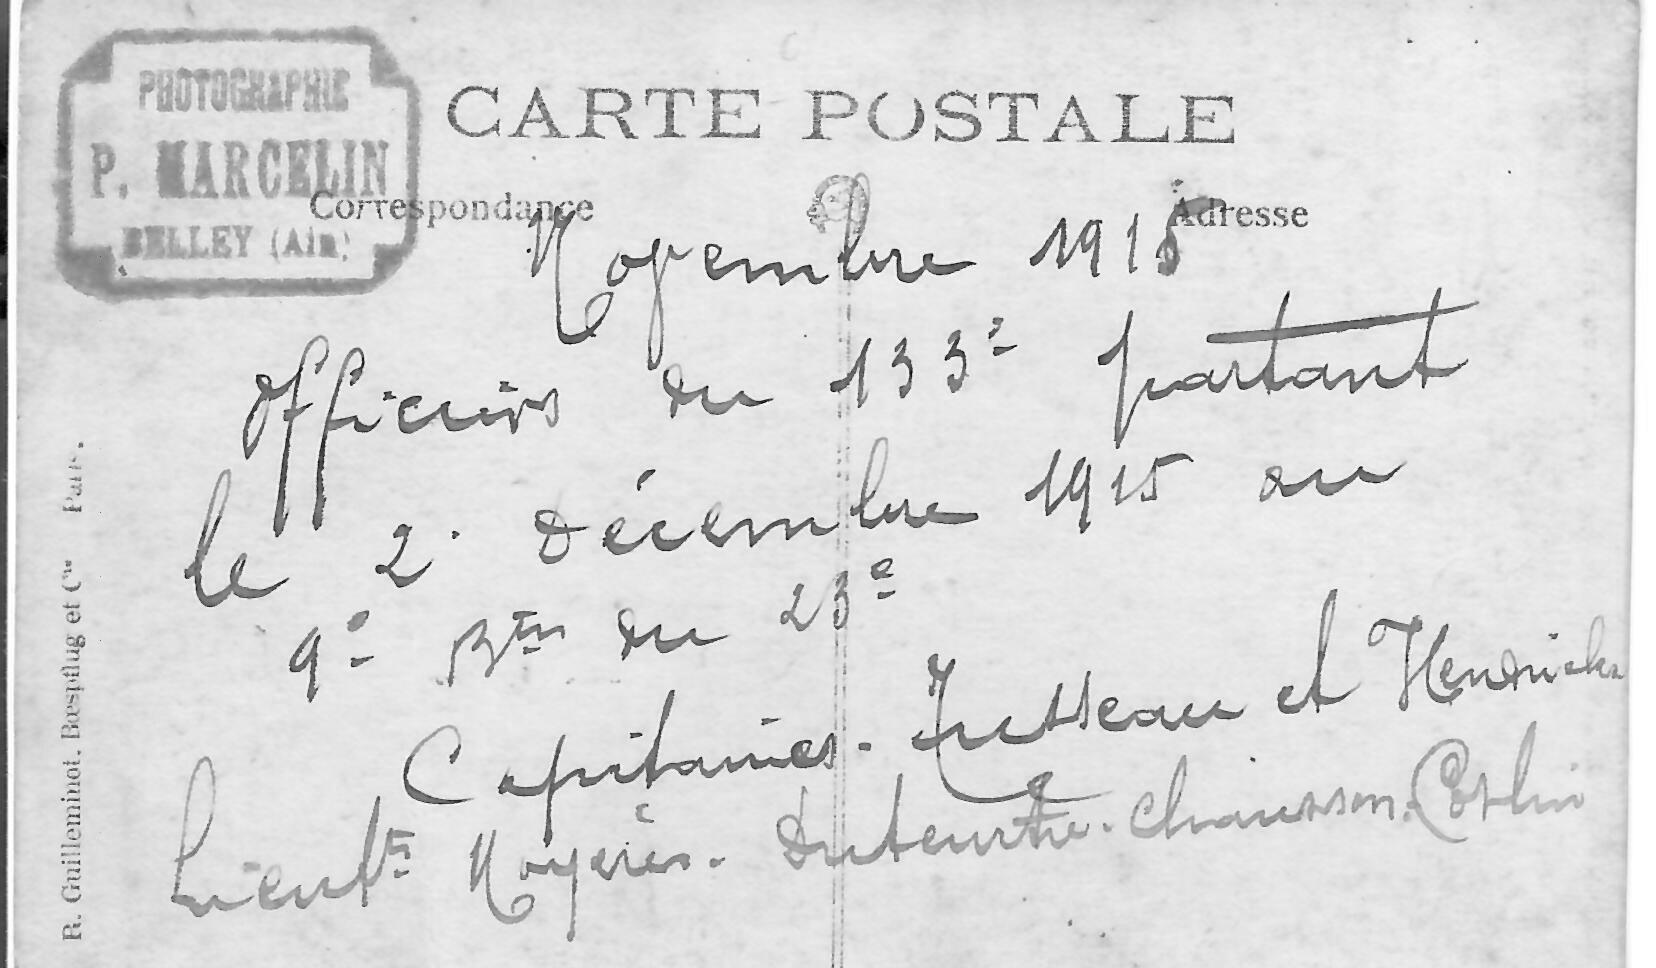 PHOTOGRAPHIE
P. MARCELIN
BELLEY (Ain)
CARTE POSTALE
Correspondance
Adresse
Novembre 1915
Officiers du 133e partant
le 2 Décembre 1915 au
9e Btn du 23e
Capitaines. et Hendricks
Lieutts Noyeris. Duteurtre. Chausson. Corlin
R. Guilleminot, Bœspflug et Cie Paris.